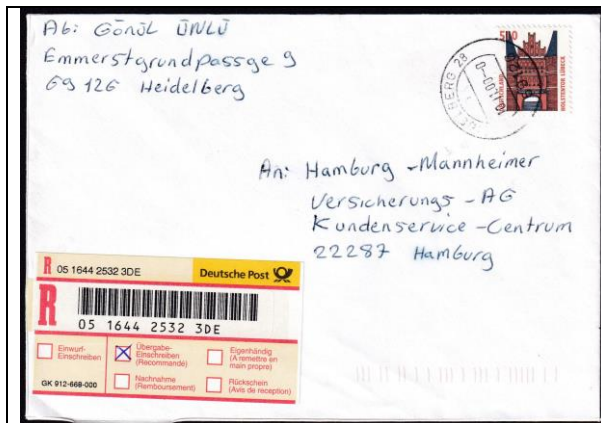 Ab: GÖNÜL ÜNLÜ
Emmerstgrundpassge 9
69126 Heidelberg
500
DEUTSCHLAND
HOLSTENTOR LÜBECK
An: Hamburg-Mannheimer
Versicherungs-AG
Kundenservice-Centrum
22287 Hamburg
R 05 1644 2532 3DE
Deutsche Post
R
05 1644 2532 3DE
Einwurf-
Einschreiben
Übergabe-
Einschreiben
(Recommandé)
Eigenhändig
(A remettre en
main propre)
Nachnahme
(Remboursement)
Rückschein
(Avis de reception)
GK 912-668-000